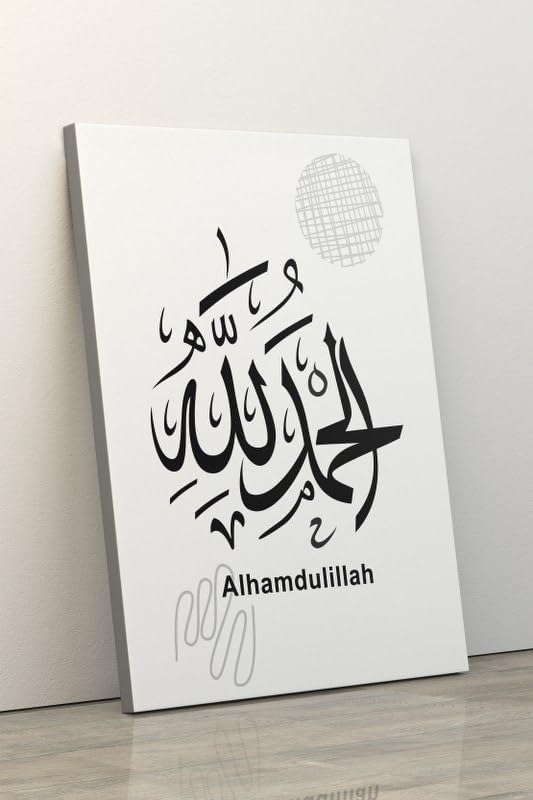 الحمد لله
Alhamdulillah